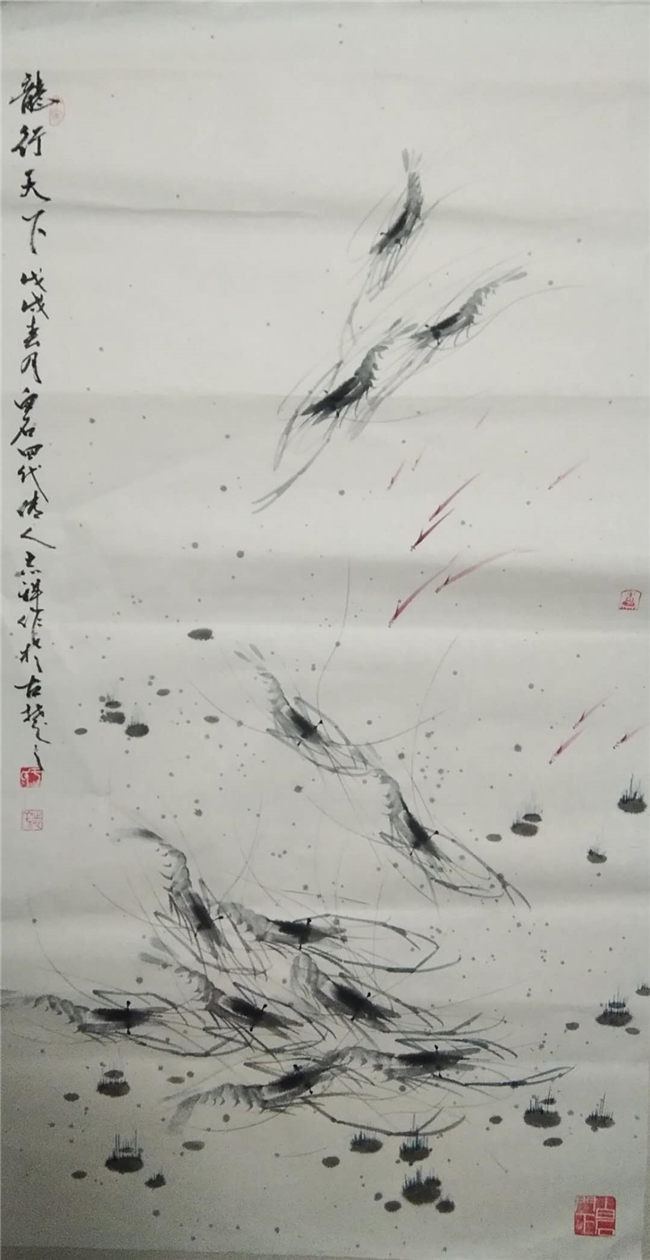 龍行天下 戊戌春月 白石四代傳人 志祥作於古楚之